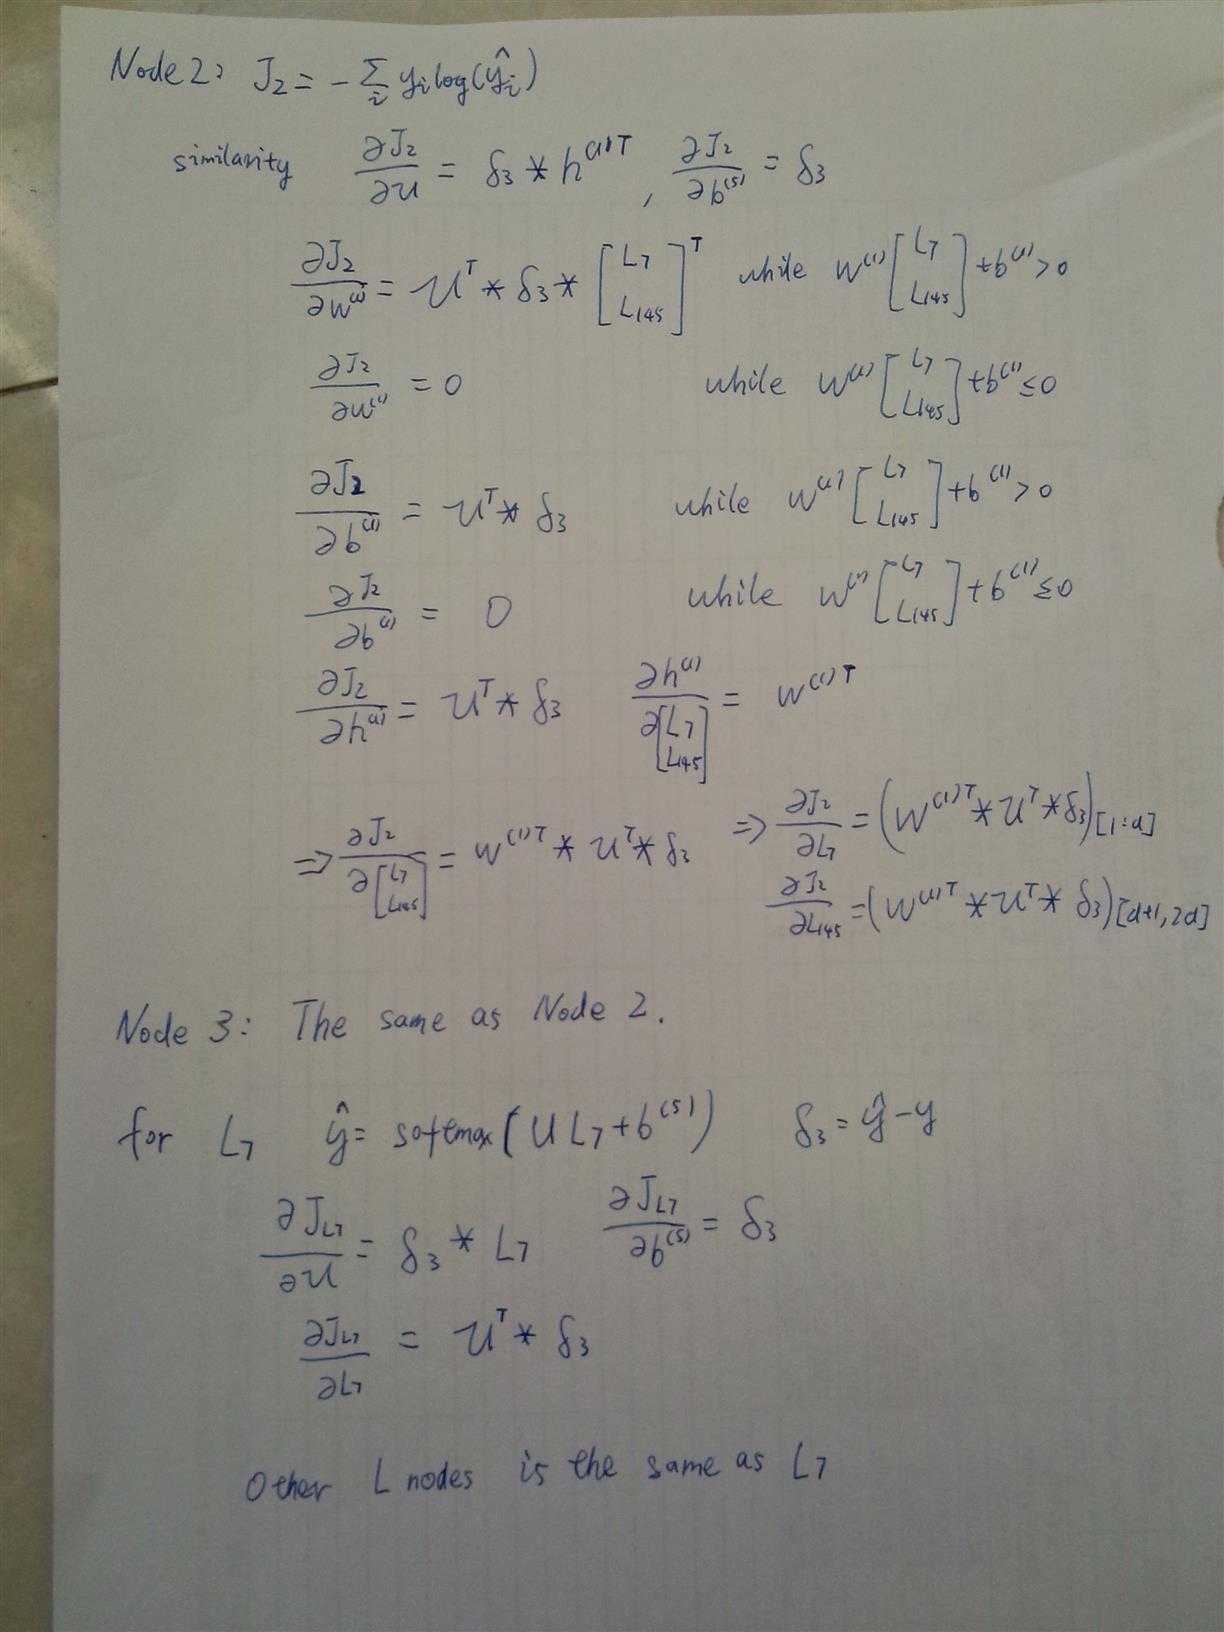 Node 2: J₂ = − Σ_i y_i log(ŷ_i)
similarity ∂J₂/∂U = δ₃ * h^(1)T , ∂J₂/∂b^(s) = δ₃
∂J₂/∂W^(1) = U^T * δ₃ * [L₇ L₁₄₅]^T while W^(1) [L₇ L₁₄₅] + b^(1) > 0
∂J₂/∂W^(1) = 0 while W^(1) [L₇ L₁₄₅] + b^(1) ≤ 0
∂J₂/∂b^(1) = U^T * δ₃ while W^(1) [L₇ L₁₄₅] + b^(1) > 0
∂J₂/∂b^(1) = 0 while W^(1) [L₇ L₁₄₅] + b^(1) ≤ 0
∂J₂/∂h^(1) = U^T * δ₃ ∂h^(1)/∂[L₇ L₁₄₅] = W^(1)T
⇒ ∂J₂/∂[L₇ L₁₄₅] = W^(1)T * U^T * δ₃ ⇒ ∂J₂/∂L₇ = (W^(1)T * U^T * δ₃)[1:d]
∂J₂/∂L₁₄₅ = (W^(1)T * U^T * δ₃)[d+1, 2d]
Node 3: The same as Node 2.
for L₇ ŷ = softmax(U L₇ + b^(s)) δ₃ = ŷ − y
∂J_L₇/∂U = δ₃ * L₇ ∂J_L₇/∂b^(s) = δ₃
∂J_L₇/∂L₇ = U^T * δ₃
Other L nodes is the same as L₇